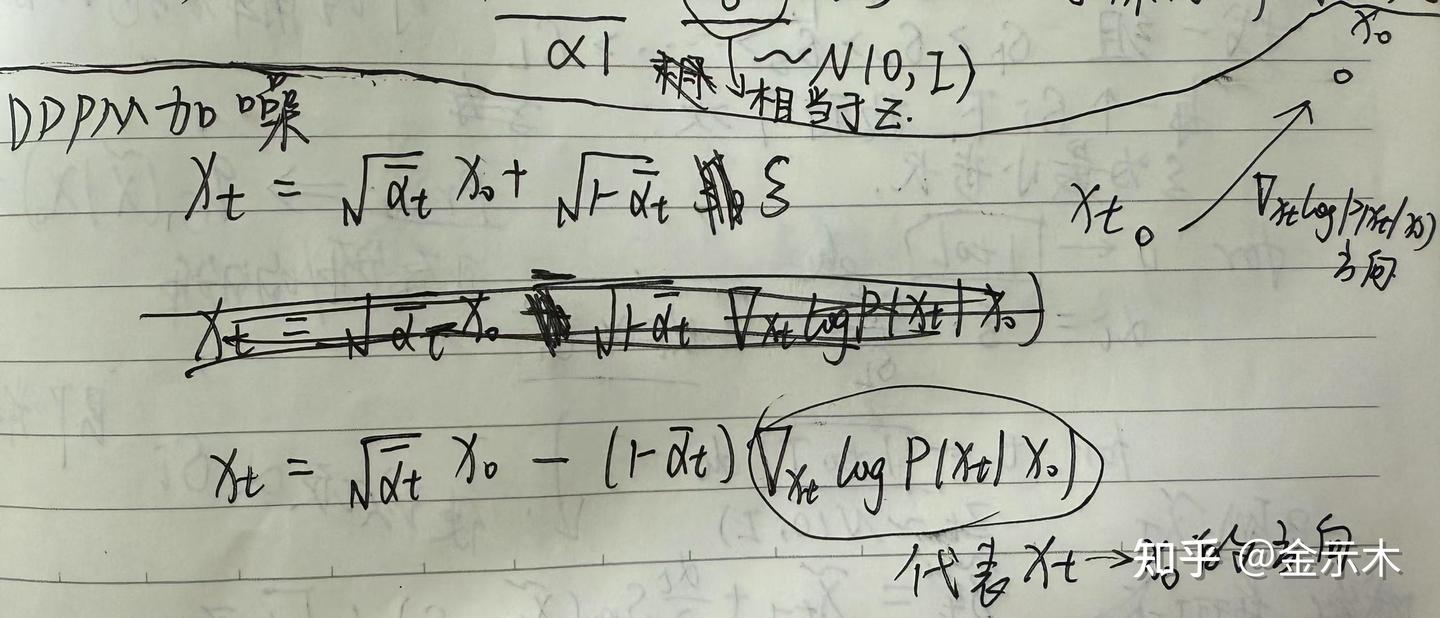 α1 ~N(0,I)
相当于z.
x₀
DDPM加噪
xₜ = √ᾱₜ x₀ + √1-ᾱₜ ε
xₜ
∇xₜ log p(xₜ|x₀)
方向
xₜ = √ᾱₜ x₀ √1-ᾱₜ ∇xₜ log P(xₜ|x₀)
xₜ = √ᾱₜ x₀ - (1-ᾱₜ) ∇xₜ log P(xₜ|x₀)
代表xₜ→x₀的方向
知乎 @金示木